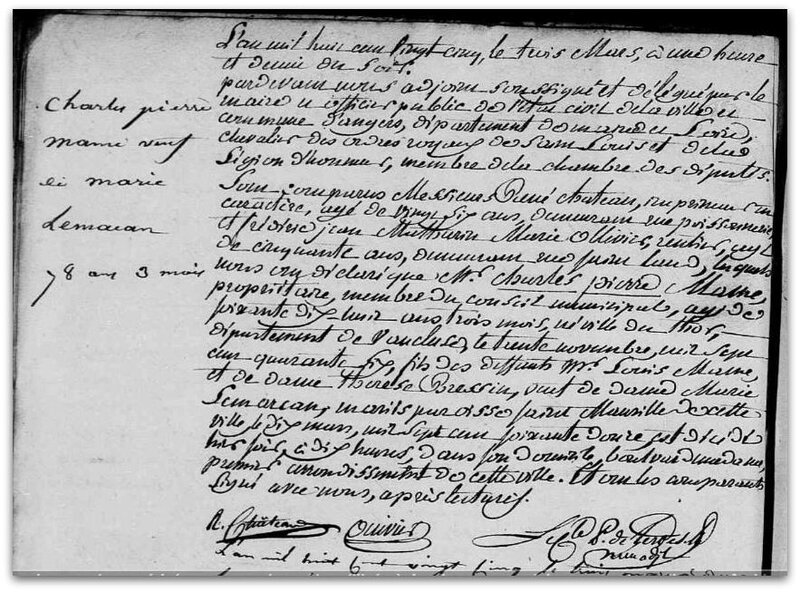 L'an mil huit cent vingt cinq, le trois Mars, à une heure
et demie du Soir.
pardevant nous adjoint soussigné et délégué par le
maire et officier public de l'état civil de la ville et
commune d'angers, département de maine et Loire,
chevalier des ordres royaux de Saint Louis et de la
Légion d'honneur, membre de la chambre des députés.
Sont comparus Messieurs René chateau, imprimeur en
caractère, agé de vingt six ans, demeurant rue poissonnerie,
et frédéric jean Mathurin Marie Ollivier, rentier, agé
de cinquante ans, demeurant rue lesquels
nous ont déclaré que Mr. Charles pierre Mame,
propriétaire, membre du conseil municipal, agé de
soixante dix-huit ans trois mois, né ville du thor,
département de Vaucluse, le trente novembre, mil sept
cent quarante six, fils des deffunts Mr. Louis Mame,
et de dame thérèse Bressin, veuf de dame Marie
Lemarcan, mariés paroisse saint Maurille de cette
ville, le dix mars, mil sept cent soixante douze est décédé
hier soir, à dix heures, dans son domicile,
premier arrondissement de cette ville. Et ont les comparants
signé avec nous, après lecture.
charles pierre
mame veuf
de marie
Lemarcan
78 ans 3 mois
R. Chateau Ollivier
L'an mil huit cent vingt cinq